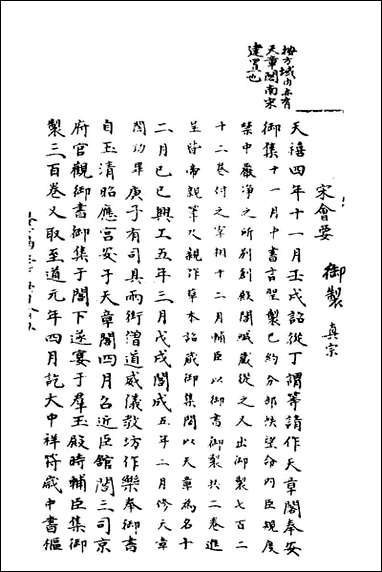 按方域內亦有
天章閣南宋
建置也
宋會要
御製 真宗
天禧四年十一月壬戌詔從丁謂等請作天章閣奉安
御集十一月中書言聖製已約分部帙望命內臣規度
禁中嚴淨之所別創殿閣緘藏從之又出御製七百二
十二卷付之宰相十二月輔臣以御書御製共二卷進
呈皆帝親筆及親作草本詔藏御集閣以天章為名十
二月己巳興工五年三月戊戌閣成五年二月修天章
閣功畢庚子有司具兩街僧道威儀教坊作樂奉御書
自玉清昭應宮安于天章閣四月召近臣館閣三司京
府官觀御書御集于閣下遂宴于群玉殿時輔臣集御
製三百卷又取至道元年四月訖大中祥符歲中書樞